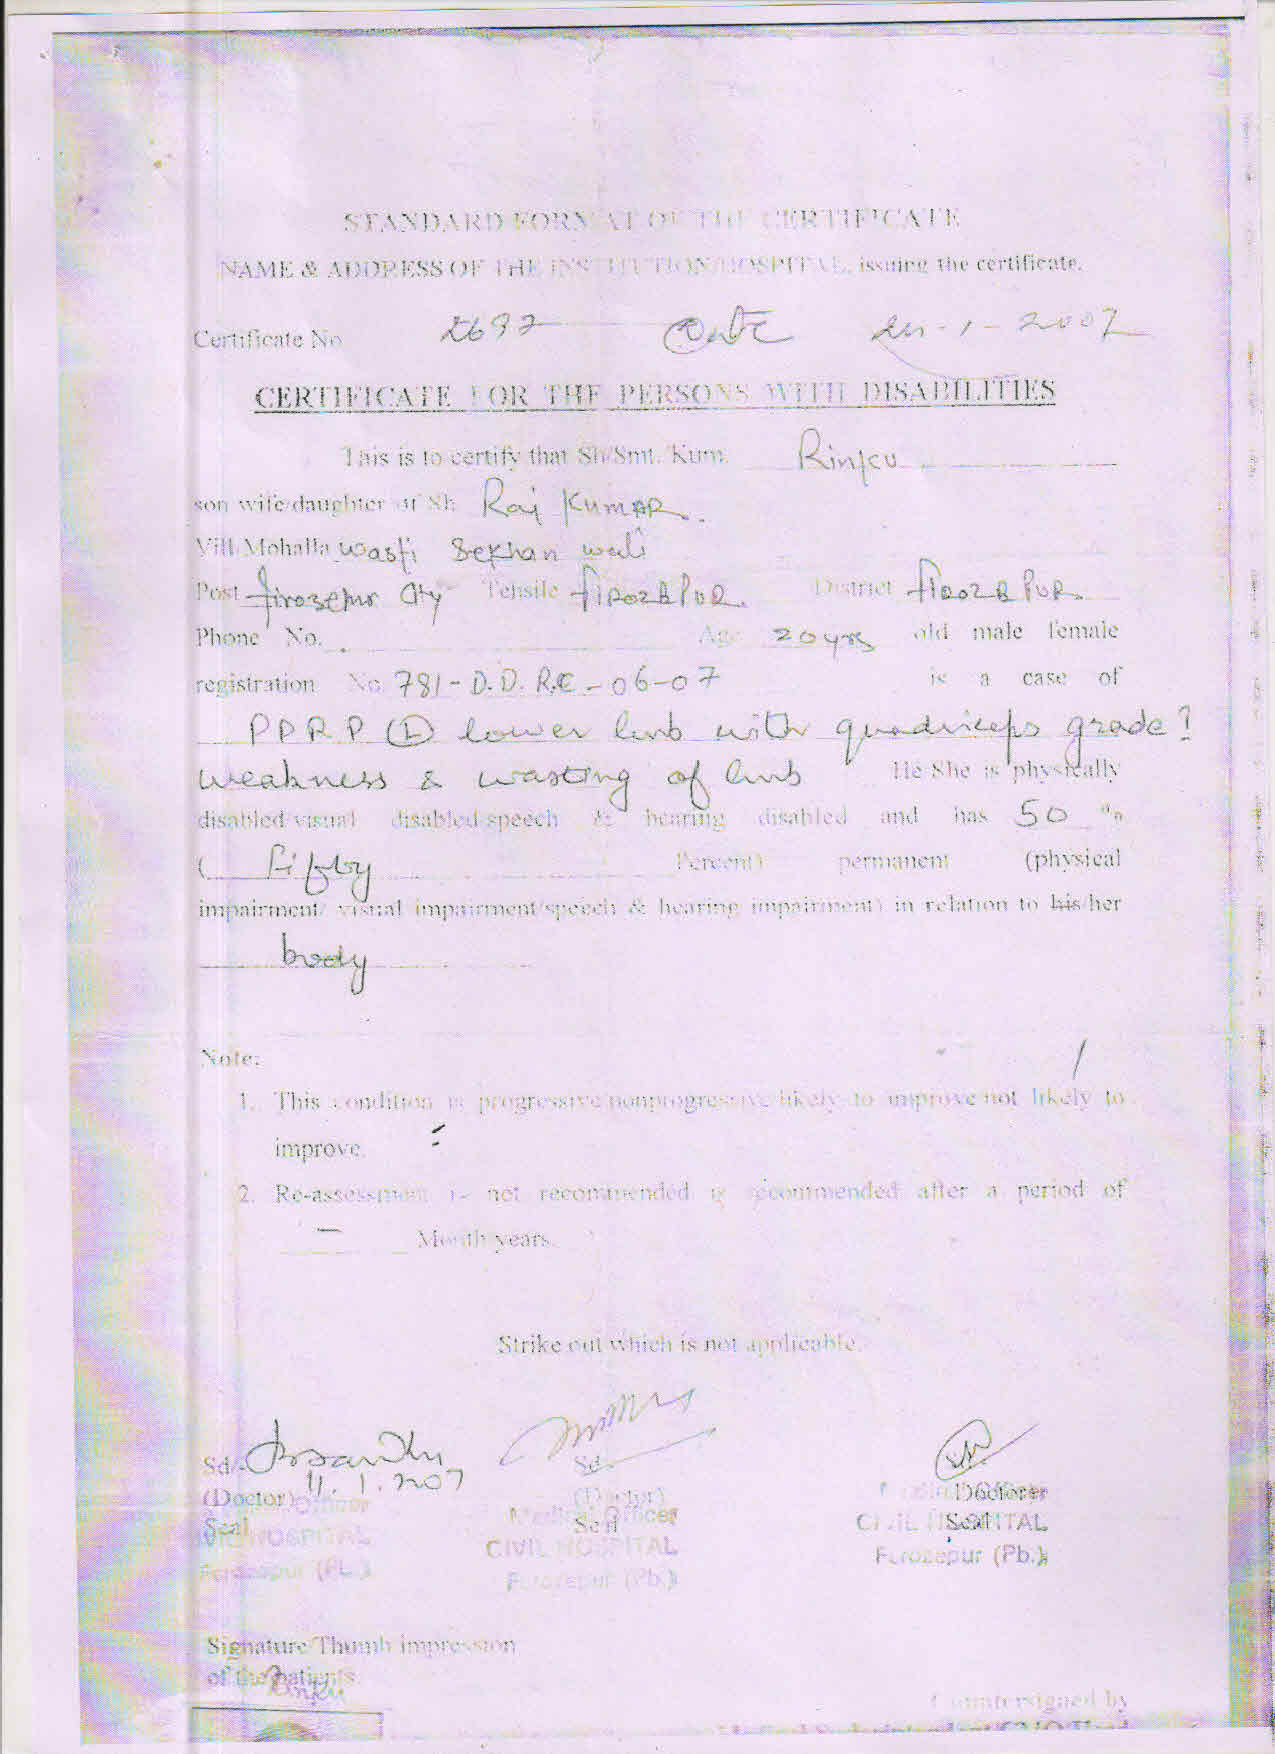 STANDARD FORMAT OF THE CERTIFICATE
NAME & ADDRESS OF THE INSTITUTION/HOSPITAL, issuing the certificate.
Certificate No 2697 Date -1-2007
CERTIFICATE FOR THE PERSONS WITH DISABILITIES
This is to certify that Sh/Smt. Kum. Rinku
son wife/daughter of Sh Raj Kumar.
Vill/Mohalla Wasti Sekhan wali
Post firozepur City Tehsile firozepur. District firozepur.
Phone No. Age 20 yrs old male female
registration No 781-D.D.R.C-06-07 is a case of
PPRP (L) lower limb with quadriceps grade
weakness & wasting of limb He She is physically
disabled/visual disabled/speech & hearing disabled and has 50 %
( Fifty Percent) permanent (physical
impairment/ visual impairment/speech & hearing impairment) in relation to his/her
body
Note:
1. This condition is progressive/nonprogressive/likely to improve/not likely to
improve.
2. Re-assessment is not recommended is recommended after a period of
– Month/years.
Strike out which is not applicable.
Sd/- Sd/-
11.1.2007
(Doctor) (Doctor) (Doctor)
Seal Seal Seal
Officer Medical Officer Medical Officer
CIVIL HOSPITAL CIVIL HOSPITAL CIVIL HOSPITAL
Ferozepur (Pb.) Ferozepur (Pb.) Ferozepur (Pb.)
Signature/Thumb impression
of the patients
Rinku
Countersigned by